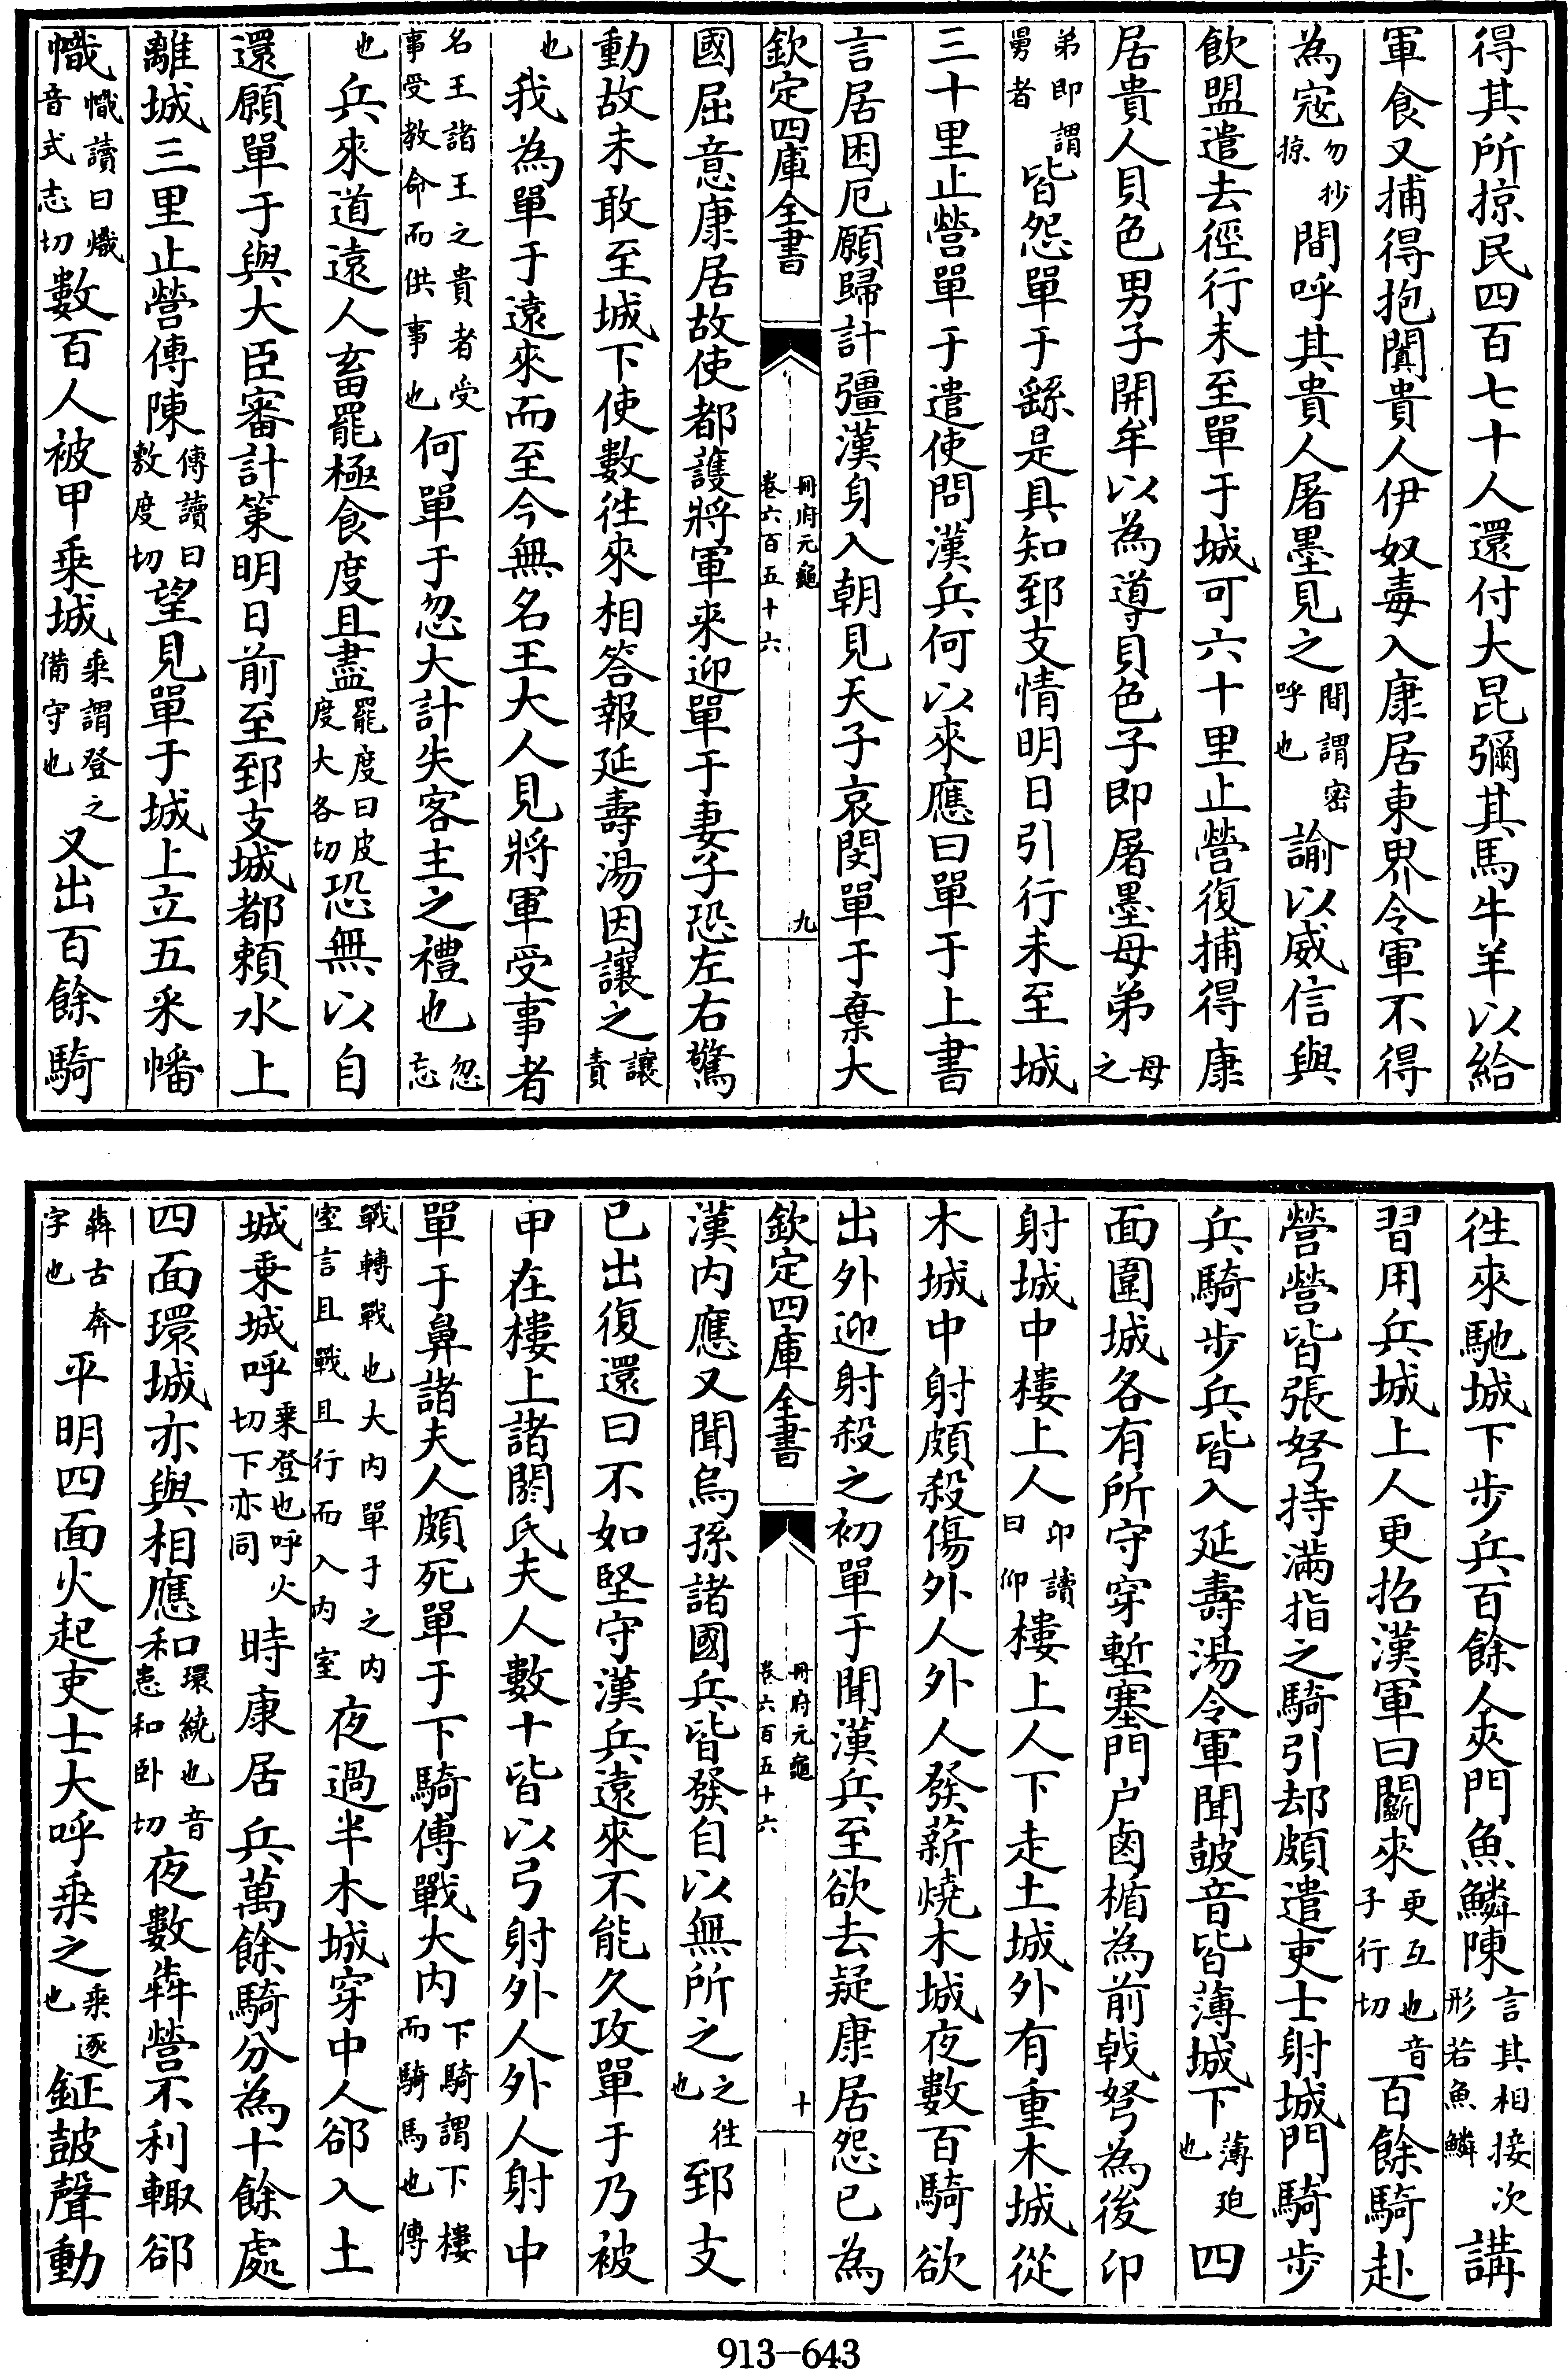 得其所掠民四百七十人還付大昆彌其馬牛羊以給
軍食又捕得抱闐貴人伊奴毒入康居東界令軍不得
為㓂勿抄掠間呼其貴人屠墨見之間謂密呼也諭以威信與
飲盟遣去徑行未至單于城可六十里止營復捕得康
居貴人貝色男子開牟以為導貝色子即屠墨母弟母之
弟即謂舅者皆怨單于繇是具知郅支情明日引行未至城
三十里止營單于遣使問漢兵何以來應曰單于上書
言居困厄願歸計彊漢身入朝見天子哀閔單于棄大
欽定四庫全書
冊府元龜
卷六百五十六
九
國屈意康居故使都護將軍来迎單于妻子恐左右驚
動故未敢至城下使數徃來相答報延壽湯因讓之讓責
也我為單于遠來而至今無名王大人見將軍受事者
名王諸王之貴者受事受教命而供事也何單于忽大計失客主之禮也忽忘
也兵來道遠人畜罷極食度且盡罷度曰皮度大各切恐無以自
還願單于與大臣審計策明日前至郅支城都賴水上
離城三里止營傅陳傅讀曰敷度切望見單于城上立五采幡
幟幟讀曰熾音式志切數百人被甲乗城乗謂登之備守也又出百餘騎
徃來馳城下步兵百餘人夾門魚鱗陳言其相接次形若魚鱗講
習用兵城上人更招漢軍曰鬬來更互也音子行切百餘騎赴
營營皆張弩持滿指之騎引却頗遣吏士射城門騎步
兵騎步兵皆入延壽湯令軍聞皷音皆薄城下薄廹也四
面圍城各有所守穿塹塞門户鹵楯為前戟弩為後卬
射城中樓上人卬讀曰仰樓上人下走土城外有重木城從
木城中射頗殺傷外人外人發薪燒木城夜數百騎欲
出外迎射殺之初單于聞漢兵至欲去疑康居怨已為
欽定四庫全書
冊府元龜
卷六百五十六
十
漢内應又聞烏孫諸國兵皆發自以無所之之徃也郅支
已出復還曰不如堅守漢兵遠來不能久攻單于乃被
甲在樓上諸閼氏夫人數十皆以弓射外人外人射中
單于鼻諸夫人頗死單于下騎傳戰大内下騎謂下樓而騎馬也傳
戰轉戰也大内單于之内室言且戰且行而入内室夜過半木城穿中人郤入土
城乗城呼乗登也呼火切下亦同時康居兵萬餘騎分為十餘處
四面環城亦與相應和環繞也音患和卧切夜數犇營不利輙郤
犇古奔字也平明四面火起吏士大呼乗之乗逐也鉦皷聲動
913-643